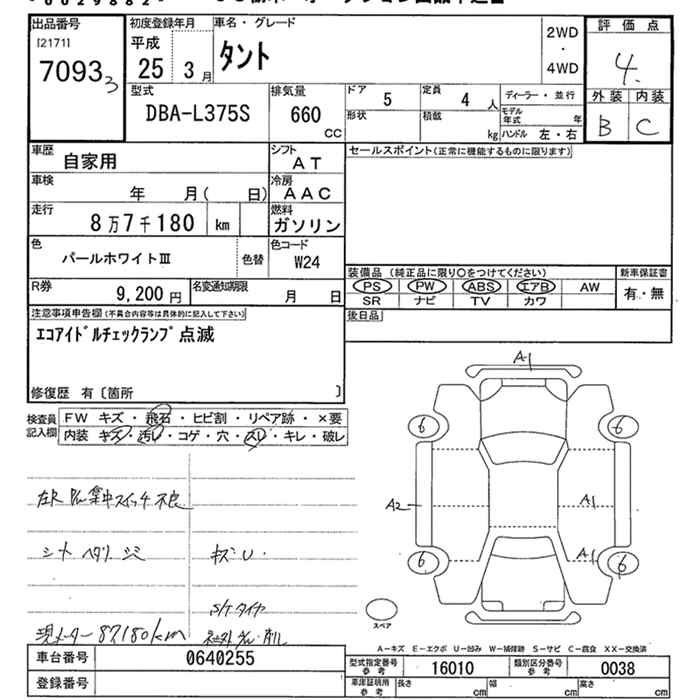 出品番号 初度登録年月 車名・グレード 2WD・4WD 評価点
[2171] 平成 タント 4.
7093 3 25 3月
型式 排気量 ドア 定員 ディーラー・並行 外装 内装
DBA-L375S 660 CC 5 4人 モデル年式 年 B C
形状 積載 kg ハンドル 左・右
車歴 自家用 シフト AT セールスポイント(正常に機能するものに限ります)
車検 年 月( 日) 冷房 AAC
走行 8万7千180 km 燃料 ガソリン
色 パールホワイトⅢ 色替 色コード W24
装備品 (純正品に限り○をつけてください) 新車保証書
PS PW ABS エアB AW 有・無
SR ナビ TV カワ
R券 9,200円 名変通知期限 月 日
後日品
注意事項申告欄(不具合内容等は具体的に記入して下さい)
エコアイドルチェックランプ点滅
修復歴 有〔箇所 〕
検査員記入欄 FW キズ・飛石・ヒビ割・リペア跡・×要
内装 キズ・汚レ・コゲ・穴・スレ・キレ・破レ
A1
6 6
A2 A1
A1
6 6
スペア
不良
シート ヘタリ シミ キズU
S/Tタイヤ
現メーター87180km
A-キズ E-エクボ U-凹み W-補修跡 S-サビ C-腐食 XX-交換済
車台番号 0640255 型式指定番号 参考 16010 類別区分番号 参考 0038
登録番号 車庫証明用 参考 長さ cm 幅 cm 高さ cm